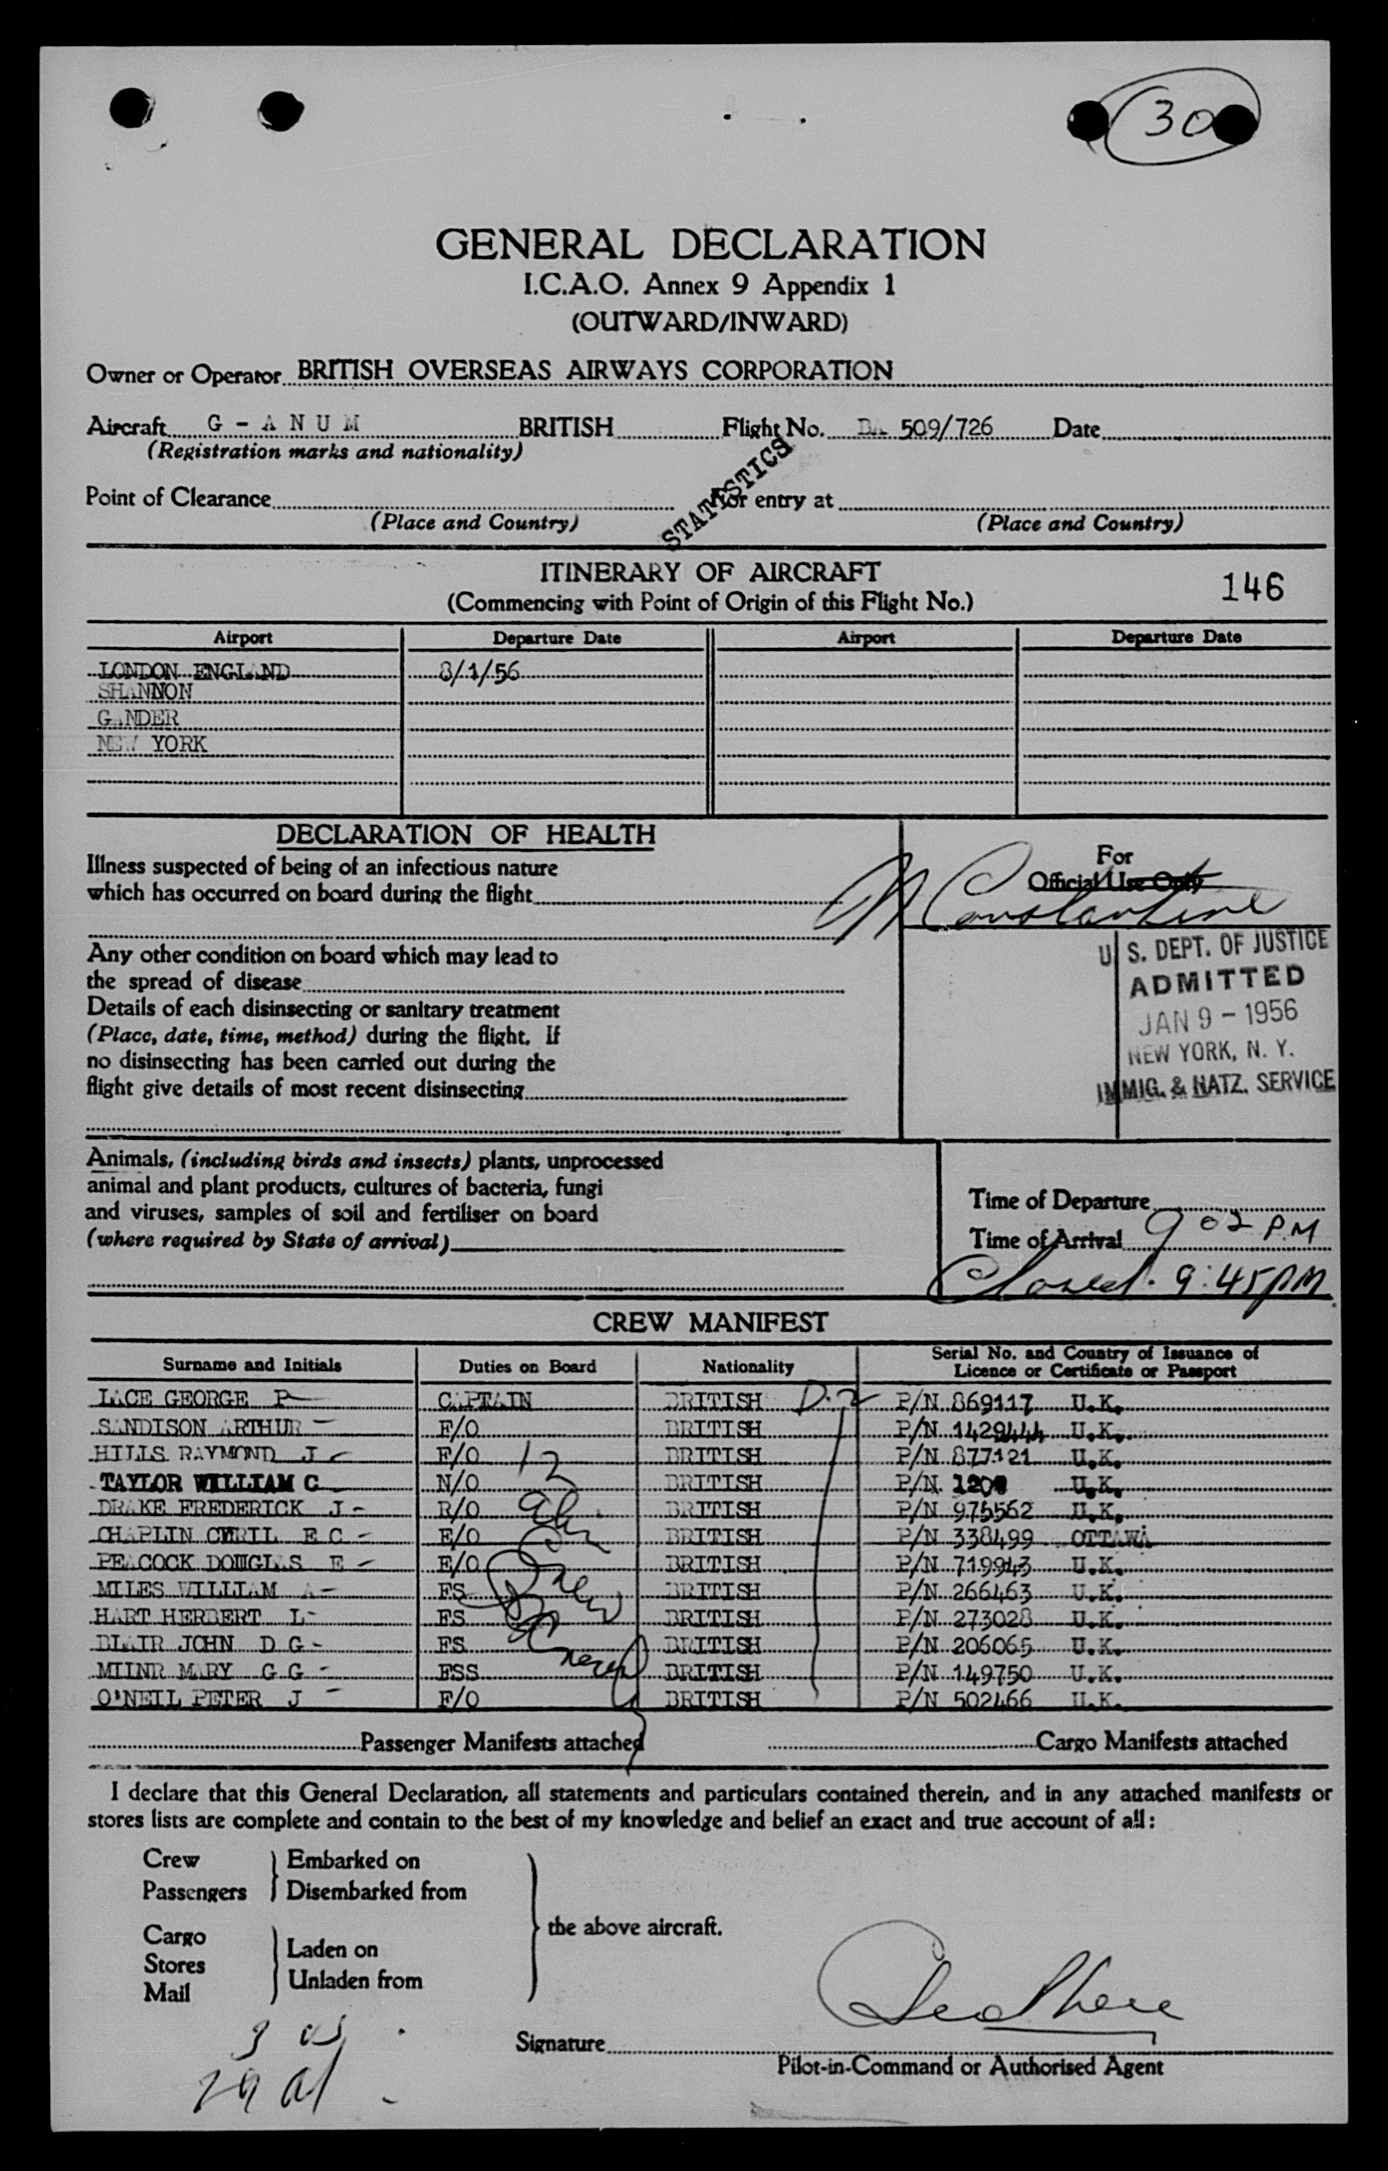 30
GENERAL DECLARATION
I.C.A.O. Annex 9 Appendix 1
(OUTWARD/INWARD)
Owner or Operator BRITISH OVERSEAS AIRWAYS CORPORATION
Aircraft G - A N U M BRITISH Flight No. BA 509/726 Date
(Registration marks and nationality)
STATISTICS
Point of Clearance For entry at
(Place and Country) (Place and Country)
ITINERARY OF AIRCRAFT
(Commencing with Point of Origin of this Flight No.)
146
Airport Departure Date Airport Departure Date
LONDON ENGLAND 8/1/56
SHANNON
GANDER
NEW YORK
DECLARATION OF HEALTH
Illness suspected of being of an infectious nature
which has occurred on board during the flight
Any other condition on board which may lead to
the spread of disease
Details of each disinsecting or sanitary treatment
(Place, date, time, method) during the flight. If
no disinsecting has been carried out during the
flight give details of most recent disinsecting
For
Official Use Only
M Constantine
U. S. DEPT. OF JUSTICE
ADMITTED
JAN 9 - 1956
NEW YORK, N. Y.
IMMIG. & NATZ. SERVICE
Animals, (including birds and insects) plants, unprocessed
animal and plant products, cultures of bacteria, fungi
and viruses, samples of soil and fertiliser on board
(where required by State of arrival)
Time of Departure
Time of Arrival 9 02 PM
Closed. 9:45 PM
CREW MANIFEST
Surname and Initials Duties on Board Nationality Serial No. and Country of Issuance of Licence or Certificate or Passport
LACE GEORGE P CAPTAIN BRITISH D-2 P/N 869117 U.K.
SANDISON ARTHUR F/O BRITISH P/N 1429444 U.K.
HILLS RAYMOND J F/O BRITISH P/N 877121 U.K.
TAYLOR WILLIAM C N/O BRITISH P/N U.K.
DRAKE FREDERICK J R/O BRITISH P/N 975562 U.K.
CHAPLIN CYRIL E C E/O BRITISH P/N 338499 OTTAWA
PEACOCK DOUGLAS E E/O BRITISH P/N 719943 U.K.
MILES WILLIAM A FS BRITISH P/N 266463 U.K.
HART HERBERT L FS BRITISH P/N 273028 U.K.
BLAIR JOHN D G FS BRITISH P/N 206065 U.K.
MILNR MARY G G FSS BRITISH P/N 149750 U.K.
O'NEIL PETER J F/O BRITISH P/N 502466 U.K.
12
Crew
Passenger Manifests attached Cargo Manifests attached
I declare that this General Declaration, all statements and particulars contained therein, and in any attached manifests or
stores lists are complete and contain to the best of my knowledge and belief an exact and true account of all:
Crew Embarked on
Passengers Disembarked from
the above aircraft.
Cargo
Stores
Mail
Laden on
Unladen from
Signature
Pilot-in-Command or Authorised Agent